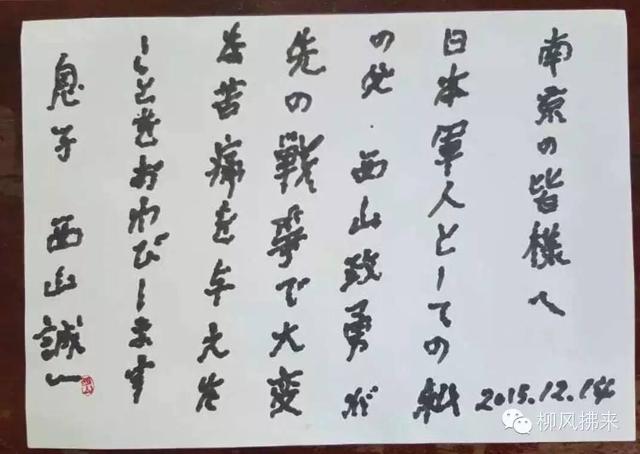 南京の皆様へ
2015.12.14
日本軍人としての私
の父・西山政勇が
先の戦争で大変
な苦痛を与えた
ことをおわびします
息子 西山誠一
柳风拂来